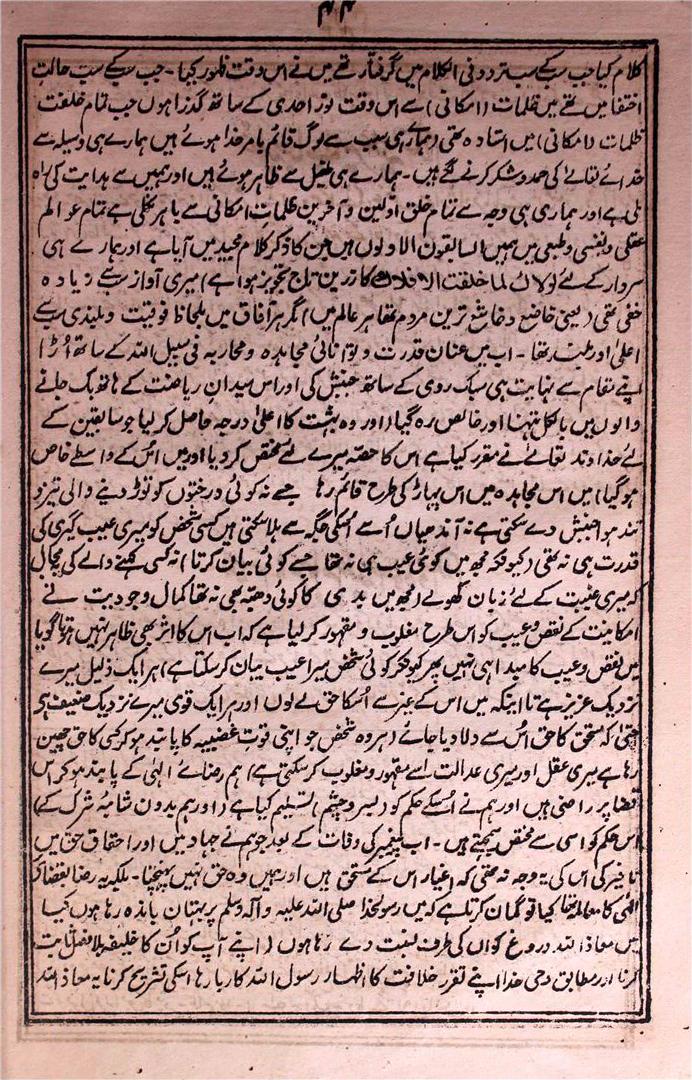 ۴۴
کلام کیا جب سب کے سب تردد فی الکلام میں گرفتار تھے میں نے اس وقت ظہور کیا۔ جب سب کے سب حالت
اختفا میں تھے میں ظلمات (امکانی) سے اس وقت نور احدی کے ساتھ گذرا ہوں جب تمام خلقت
ظلمات (امکانی) میں استادہ تھی (ہمارے ہی سبب سے لوگ قائم بامر خدا ہوئے ہیں ہمارے ہی وسیلہ سے
خدائے تعالےٰ کی حمد و شکر کرنے لگے ہیں۔ ہمارے ہی طفیل سے ظاہر ہوئے ہیں اور ہمیں سے ہدایت کی راہ
ملی ہے اور ہماری ہی وجہ سے تمام خلق اولین و آخرین ظلمات امکانی سے باہر نکلی ہے تمام عوالم
عقلی و نفسی و طبعی میں ہمیں السابقون الاولون ہیں جن کا ذکر کلام مجید میں آیا ہے اور ہمارے ہی
سردار کے لئے لولاک لما خلقت الافلاک کا زرین تاج تجویز ہوا ہے) میری آواز سب سے زیادہ
خفی تھی (یعنی خاضع و خاشع ترین مردم تھا ہر عالم میں) مگر ہر آفاق میں بلحاظ فوقیت و بلندی سب سے
اعلیٰ اور بلند تھا۔ اب میں عنان قدرت و توانائی مجاہدہ و محاربہ فی سبیل اللہ کے ساتھ اُڑا
اپنے مقام سے نہایت ہی سبک روی کے ساتھ جنبش کی اور اس میدان ریاضت کے ہاتھ بک جانے
والوں میں بالکل تنہا اور خالص رہ گیا (اور وہ بہشت کا اعلیٰ درجہ حاصل کر لیا جو سابقین کے
لئے خداوند تعالےٰ نے مقرر کیا ہے اس کا حصہ میرے لئے مختص کر دیا اور میں اُس کے واسطے خاص
ہو گیا) میں اس مجاہدہ میں اس پہاڑ کی طرح قائم رہا جسے نہ کوئی درختوں کو توڑ دینے والی تیز و
تند ہوا جنبش دے سکتی ہے نہ آندھیاں اُسے اُسکی جگہ سے ہلا سکتی ہیں کسی شخص کو میری عیب گیری کی
قدرت ہی نہ تھی (کیونکہ مجھ میں کوئی عیب ہی نہ تھا جسے کوئی بیان کرتا) نہ کسی کہنے والے کی مجال
کہ میری غیبت کے لئے زبان کھولے (مجھ میں بدی کا کوئی دھبہ بھی نہ تھا کمال وجودیت نے
امکانیت کے نقص و عیب کو اس طرح مغلوب و مقہور کر لیا ہے کہ اب اس کا اثر بھی ظاہر نہیں ہوتا گویا
میں نقص و عیب کا مبدا ہی نہیں پھر کیونکر کوئی شخص میرا عیب بیان کر سکتا ہے) ہر ایک ذلیل میرے
نزدیک عزیز ہے تا اینکہ میں اس کے غیر سے اُسکا حق لے لوں اور ہر ایک قوی میرے نزدیک ضعیف ہے
حتیٰ کہ مستحق کا حق اُس سے دلا دیا جائے (ہر وہ شخص جو اپنی قوت غضبیہ کا پابند ہو کر کسی کا حق چھین
رہا ہے میری عقل اور میری عدالت اسے مقہور و مغلوب کر سکتی ہے) ہم رضائے الٰہی کے پابند ہو کر اس
قضا پر راضی ہیں اور ہم نے اُسکے حکم کو (بسر و چشم) تسلیم کیا ہے (اور ہم بدون شائبۂ شرک کے)
اس حکم کو اسی سے مختص سمجھتے ہیں۔ اب پیغمبر کی وفات کے بعد جو ہم نے جہاد میں اور احقاق حق میں
تاخیر کی اس کی یہ وجہ نہ تھی کہ اغیار اس کے مستحق ہیں اور ہمیں وہ حق نہیں پہنچتا۔ بلکہ یہ رضا بقضائے
الٰہی کا معاملہ تھا کیا تو گمان کرتا ہے کہ میں رسولخدا صلی اللہ علیہ و آلہ وسلم پر بہتان باندھ رہا ہوں کیا
میں معاذ اللہ دروغ کو اُن کی طرف نسبت دے رہا ہوں (اپنے آپ کو اُن کا خلیفہ بلا فصل ثابت
کرنا اور مطابق وحی خدا اپنے تقرر خلافت کا اظہار رسول اللہ کا رہا اسکی تشریح کرنا یہ معاذ اللہ